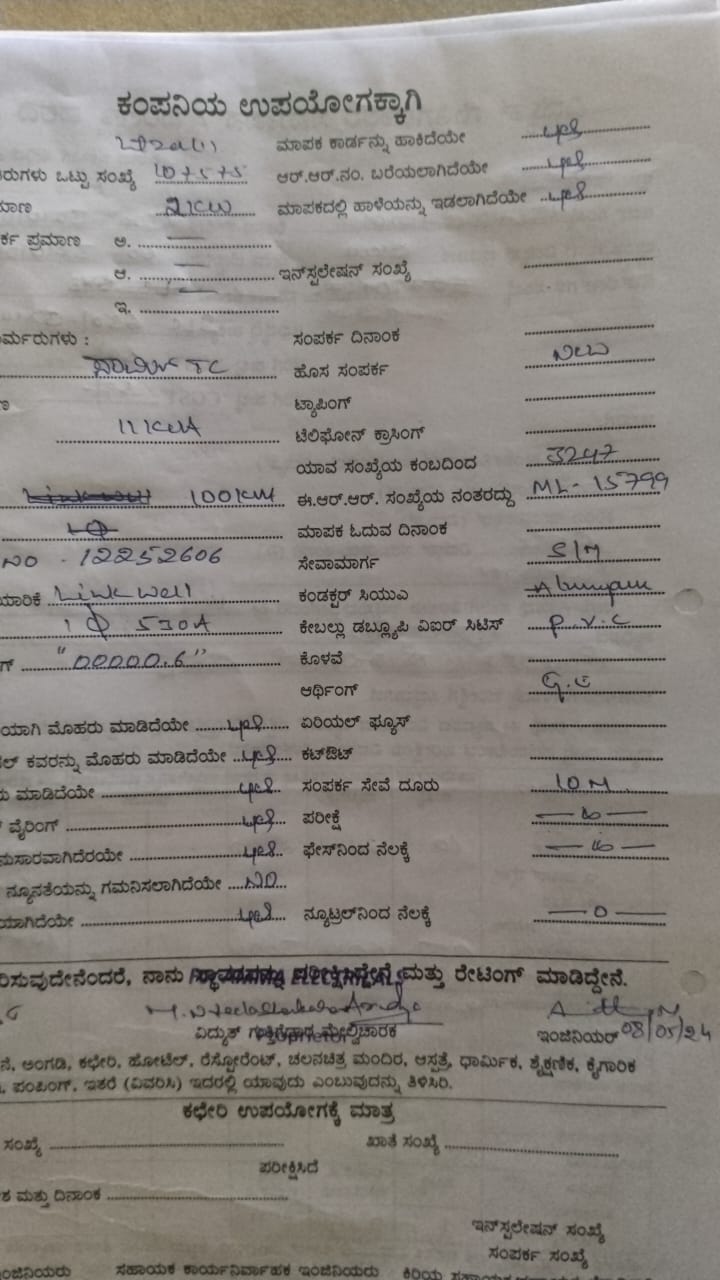 ಕಂಪನಿಯ ಉಪಯೋಗಕ್ಕಾಗಿ
ಮಾಪಕ ಕಾರ್ಡನ್ನು ಹಾಕಿದೆಯೇ yes
ರುಗಳು ಒಟ್ಟು ಸಂಖ್ಯೆ 10+5+5 ಆರ್.ಆರ್.ನಂ. ಬರೆಯಲಾಗಿದೆಯೇ yes
ಮಾಣ ಮಾಪಕದಲ್ಲಿ ಹಾಳೆಯನ್ನು ಇಡಲಾಗಿದೆಯೇ yes
ರ್ಕ ಪ್ರಮಾಣ ಅ.
ಆ. ಇನ್‌ಸ್ಟಲೇಷನ್ ಸಂಖ್ಯೆ
ಇ.
ರ್ಮರುಗಳು : ಸಂಪರ್ಕ ದಿನಾಂಕ
TC ಹೊಸ ಸಂಪರ್ಕ New
ಟ್ಯಾಪಿಂಗ್
ಟೆಲಿಫೋನ್ ಕ್ರಾಸಿಂಗ್
ಯಾವ ಸಂಖ್ಯೆಯ ಕಂಬದಿಂದ 3247
ಈ.ಆರ್.ಆರ್. ಸಂಖ್ಯೆಯ ನಂತರದ್ದು ML-15799
ಮಾಪಕ ಓದುವ ದಿನಾಂಕ
NO - 12252606 ಸೇವಾಮಾರ್ಗ S/M
ಯಾರಿಕೆ Linkwell ಕಂಡಕ್ಟರ್ ಸಿಯುಎ
1Φ 530A ಕೇಬಲ್ಲು ಡಬ್ಲ್ಯೂಪಿ ವಿಐರ್ ಸಿಟಿಸ್ P.V.C
ಗ್ "00000.6" ಕೊಳವೆ
ಆರ್ಥಿಂಗ್
ಯಾಗಿ ಮೊಹರು ಮಾಡಿದೆಯೇ yes ಏರಿಯಲ್ ಫ್ಯೂಸ್
ಲ್ ಕವರನ್ನು ಮೊಹರು ಮಾಡಿದೆಯೇ yes ಕಟ್‌ಔಟ್
ು ಮಾಡಿದೆಯೇ yes ಸಂಪರ್ಕ ಸೇವೆ ದೂರು 10M
ವೈರಿಂಗ್ yes ಪರೀಕ್ಷೆ
ನುಸಾರವಾಗಿದೆರಯೇ yes ಫೇಸ್‌ನಿಂದ ನೆಲಕ್ಕೆ
ನ್ಯೂನತೆಯನ್ನು ಗಮನಿಸಲಾಗಿದೆಯೇ NO
ಯಾಗಿದೆಯೇ yes ನ್ಯೂಟ್ರಲ್‌ನಿಂದ ನೆಲಕ್ಕೆ —0—
ರಿಸುವುದೇನೆಂದರೆ, ನಾನು ಸ್ಥಾವರವನ್ನು ಪರೀಕ್ಷಿಸಿದ್ದೇನೆ ಮತ್ತು ರೇಟಿಂಗ್ ಮಾಡಿದ್ದೇನೆ.
ವಿದ್ಯುತ್ ಗುತ್ತಿಗೆದಾರ ಮೇಲ್ವಿಚಾರಕ ಇಂಜಿನಿಯರ್ 08/05/24
ನೆ, ಅಂಗಡಿ, ಕಛೇರಿ, ಹೋಟೆಲ್, ರೆಸ್ಟೋರೆಂಟ್, ಚಲನಚಿತ್ರ ಮಂದಿರ, ಆಸ್ಪತ್ರೆ, ಧಾರ್ಮಿಕ, ಶೈಕ್ಷಣಿಕ, ಕೈಗಾರಿಕ
, ಪಂಪಿಂಗ್, ಇತರೆ (ವಿವರಿಸಿ) ಇದರಲ್ಲಿ ಯಾವುದು ಎಂಬುವುದನ್ನು ತಿಳಿಸಿರಿ.
ಕಛೇರಿ ಉಪಯೋಗಕ್ಕೆ ಮಾತ್ರ
ಸಂಖ್ಯೆ ಖಾತೆ ಸಂಖ್ಯೆ
ಪರೀಕ್ಷಿಸಿದೆ
ಶ ಮತ್ತು ದಿನಾಂಕ
ಇನ್‌ಸ್ಟಲೇಷನ್ ಸಂಖ್ಯೆ
ಸಂಪರ್ಕ ಸಂಖ್ಯೆ
ಇಂಜಿನಿಯರು ಸಹಾಯಕ ಕಾರ್ಯನಿರ್ವಾಹಕ ಇಂಜಿನಿಯರು ಕಿರಿಯ